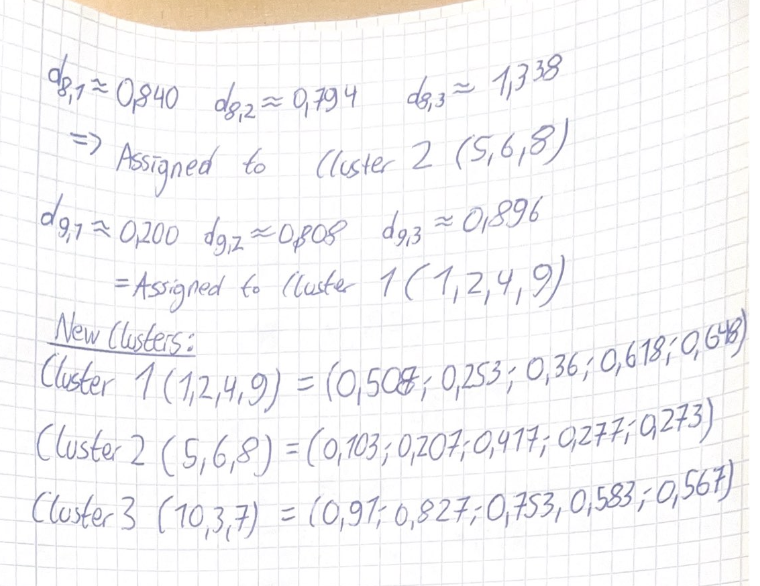 d8,1 ≈ 0,840 d8,2 ≈ 0,794 d8,3 ≈ 1,338
=> Assigned to Cluster 2 (5,6,8)
d9,1 ≈ 0,200 d9,2 ≈ 0,808 d9,3 ≈ 0,896
= Assigned to Cluster 1 (1,2,4,9)
New Clusters:
Cluster 1 (1,2,4,9) = (0,508; 0,253; 0,36; 0,618; 0,648)
Cluster 2 (5,6,8) = (0,103; 0,207; 0,417; 0,277; 0,273)
Cluster 3 (10,3,7) = (0,97; 0,827; 0,753, 0,583; 0,567)